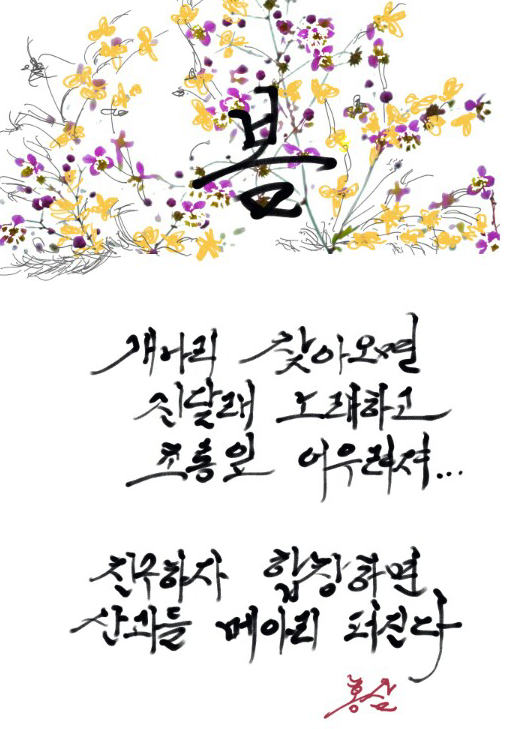 봄
개나리 찾아오면
진달래 노래하고
초롱잎 어우러져...
친구하자 합창하면
산과들 메아리 퍼진다
홍삼